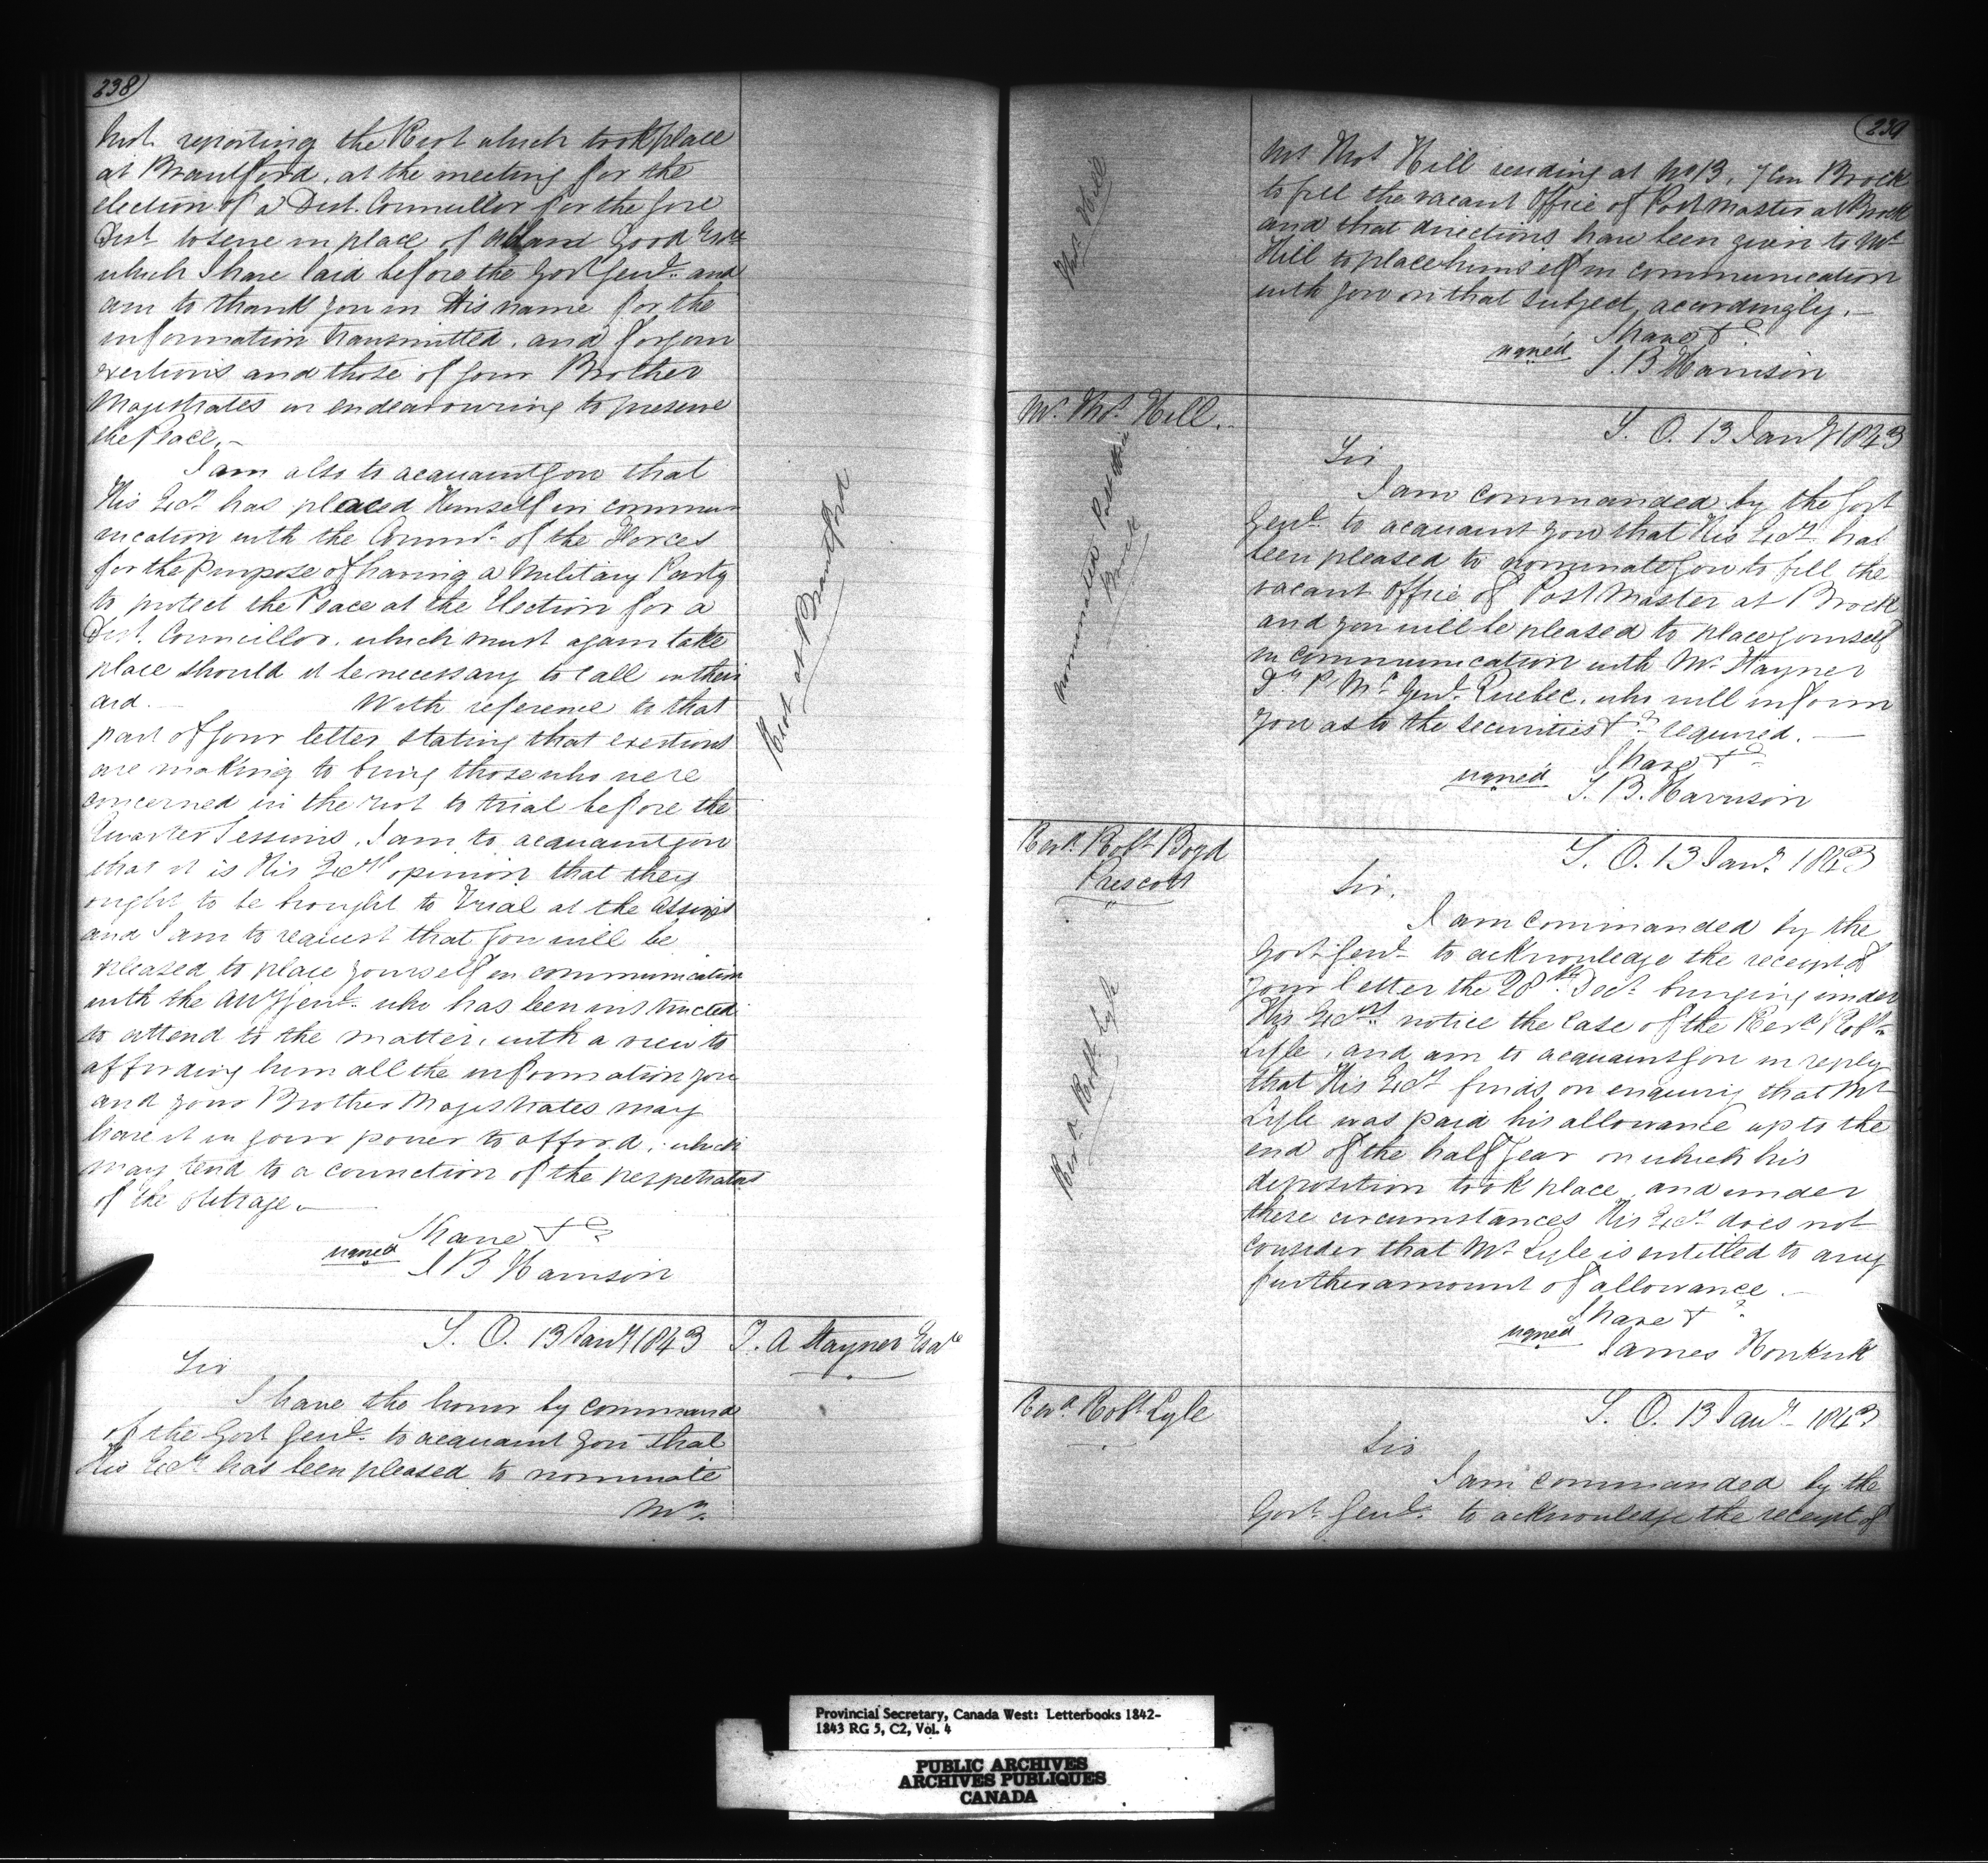 238
Inst. reporting the Riot which took place
at Brantford, at the meeting for the
election of a Dist. Councillor for the Gore
Dist. to serve in place of Good Esqre
which I have laid before the Govr Genl. and
am to thank you in His name for the
information transmitted, and for your
exertions and those of your Brother
Magistrates in endeavouring to preserve
the Peace.
I am also to acquaint you that
His Excy has placed Himself in commu-
nication with the Commr. of the Forces
for the Purpose of having a Military Party
to protect the Peace at the Election for a
Dist. Councillor, which must again take
place should it be necessary to call in their
aid. With reference to that
part of your letter stating that exertions
are making to bring those who were
concerned in the riot to trial before the
Quarter Sessions, I am to acquaint you
that it is His Excys opinion that they
ought to be brought to Trial at the Assizes
and I am to request that you will be
pleased to place yourself in communication
with the Atty Genl. who has been instructed
to attend to the matter, with a view to
affording him all the information you
and your Brother Magistrates may
have it in your power to afford, which
may tend to a conviction of the perpetrators
of the Outrage.
I have &c
signed S B Harrison
Riot at Brantford
S. O. 13 Jany 1843
T. A Stayner Esqre
Sir
I have the honor by command
of the Govr Genl. to acquaint you that
His Excy has been pleased to nominate
Mr.
239
Mr Thos Hill residing at No 13, 7 Con Brock
to fill the vacant Office of Post Master at Brock
and that directions have been given to Mr
Hill to place himself in communication
with you on that subject, accordingly.
I have &c
signed S. B Harrison
Thos Hill
Mr. Thos. Hill.
S. O. 13 Jany 1843
Sir
I am commanded by the Govr
Genl. to acquaint you that His Excy. has
been pleased to nominate you to fill the
vacant Office of Post Master at Brock
and you will be pleased to place yourself
in communication with Mr Stayner
Dy P. Mr. Genl. Quebec, who will inform
you as to the securities &c required.
I have &c
signed S. B. Harrison
nominated
Brock
Revd. Robt Boyd
Prescott
S. O. 13 Jany. 1843
Sir,
I am commanded by the
Govr Genl. to acknowledge the receipt of
your letter the 28th. Decr. bringing under
His Excys notice the case of the Revd Robt.
Lyle, and am to acquaint you in reply
that His Excy finds on enquiry that Mr
Lyle was paid his allowance up to the
end of the half year in which his
deposition took place, and under
these circumstances His Excy does not
consider that Mr. Lyle is entitled to any
further amount of allowance.
I have &c
signed James Hopkirk
Revd. Robt. Lyle
Revd. Robt Lyle
S. O. 13 Jany 1843
Sir
I am commanded by the
Govr. Genl. to acknowledge the receipt of
Provincial Secretary, Canada West: Letterbooks 1842-
1843 RG 5, C2, Vol. 4
PUBLIC ARCHIVES
ARCHIVES PUBLIQUES
CANADA